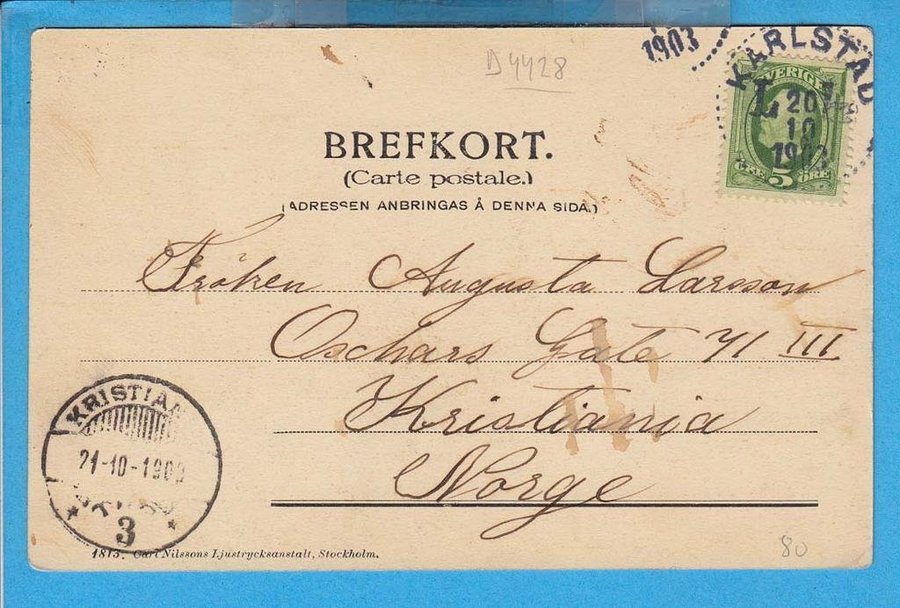 D4428
1903
KARLSTAD
SVERIGE
L 20
10
1903
5 ÖRE
BREFKORT.
(Carte postale.)
(ADRESSEN ANBRINGAS Å DENNA SIDA.)
Fröken Augusta Larsson
Oschars Gate 41 III
Kristiania
Norge
KRISTIAN
21-10-190
3
1813. Carl Nilssons Ljustrycksanstalt, Stockholm.
80